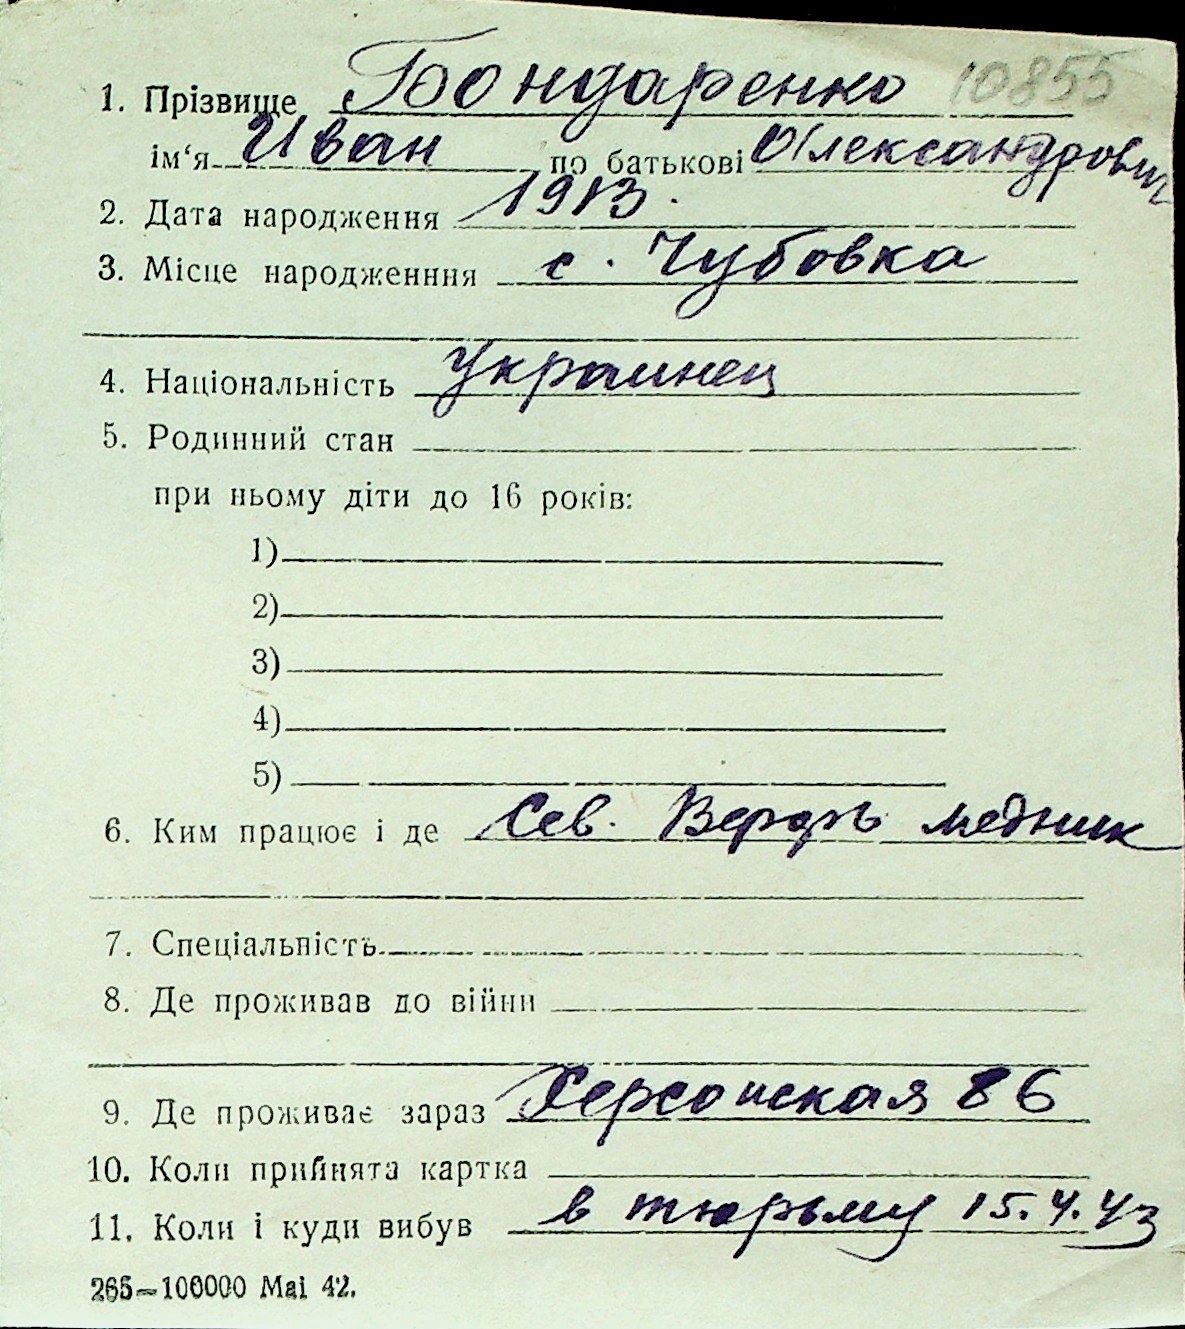 1. Прізвище Бондаренко 10855
ім'я Иван по батькові Олександрович
2. Дата народження 1913.
3. Місце народженння с. Чубовка
4. Національність Украинец
5. Родинний стан
при ньому діти до 16 років:
1)
2)
3)
4)
5)
6. Ким працює і де Сев. Верфь медник
7. Спеціальність
8. Де проживав до війни
9. Де проживає зараз Херсонская 86
10. Коли прийнята картка
11. Коли і куди вибув в тюрьму 15.4.43
265—100000 Mai 42.